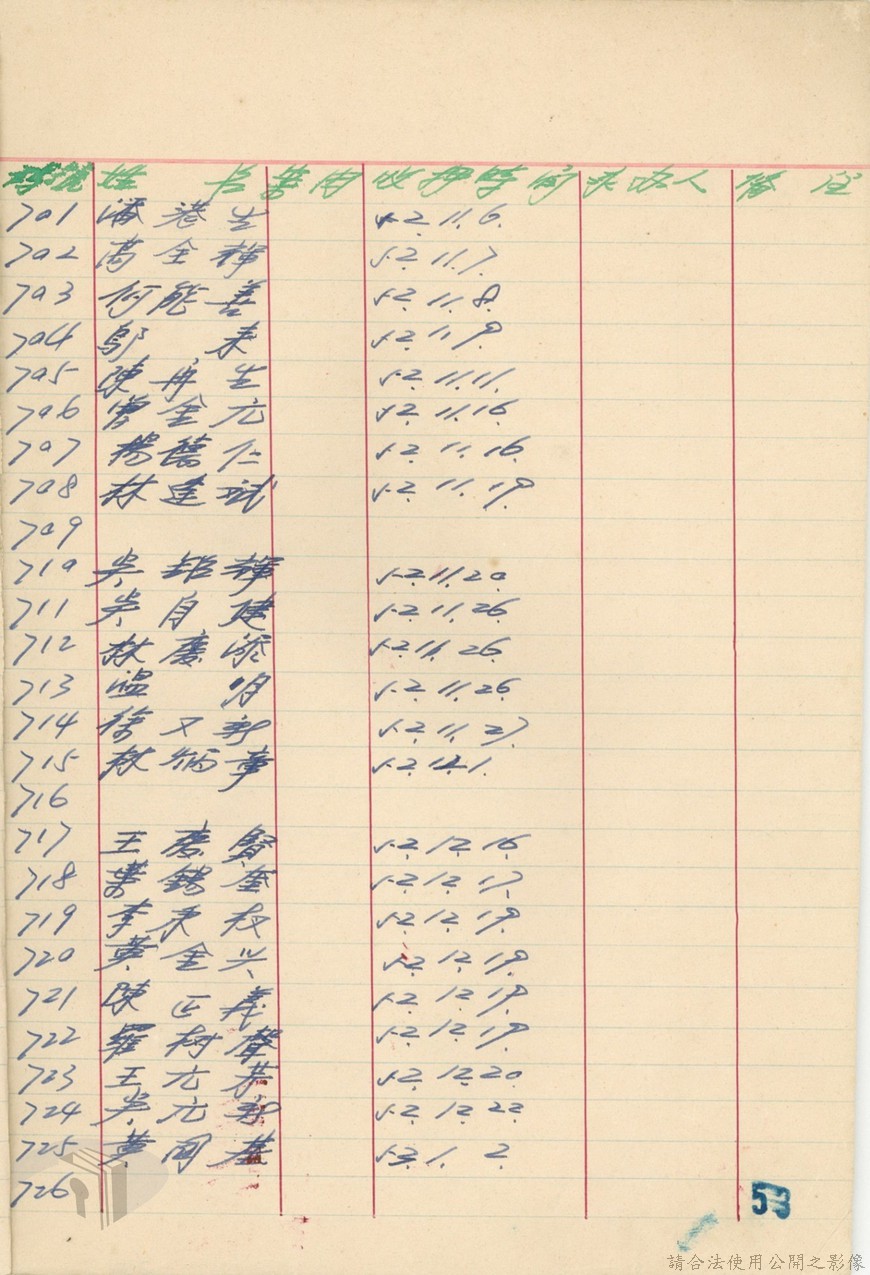 號 姓 名 案由 收押時间 承办人 備 註
701 潘港生 52.11.6.
702 高全輝 52.11.7.
703 何能善 52.11.8.
704 鄔 來 52.11.9.
705 陳再生 52.11.11.
706 曾金元 52.11.16
707 楊德仁 52.11.16.
708 林建斌 52.11.19.
709
710 吳 輝 52.11.20.
711 吳自健 52.11.26.
712 林慶添 52.11.26.
713 溫 明 52.11.26.
714 徐又新 52.11.27.
715 林炳章 52.12.1.
716
717 王慶賢 52.12.16.
718 葉錫奎 52.12.17.
719 李来 52.12.19.
720 黃金兴 52.12.19.
721 陳正義 52.12.19.
722 羅树聲 52.12.19
723 王尤芳 52.12.20
724 吳元和 52.12.22
725 黃同基 53.1.2
726
53
請合法使用公開之影像